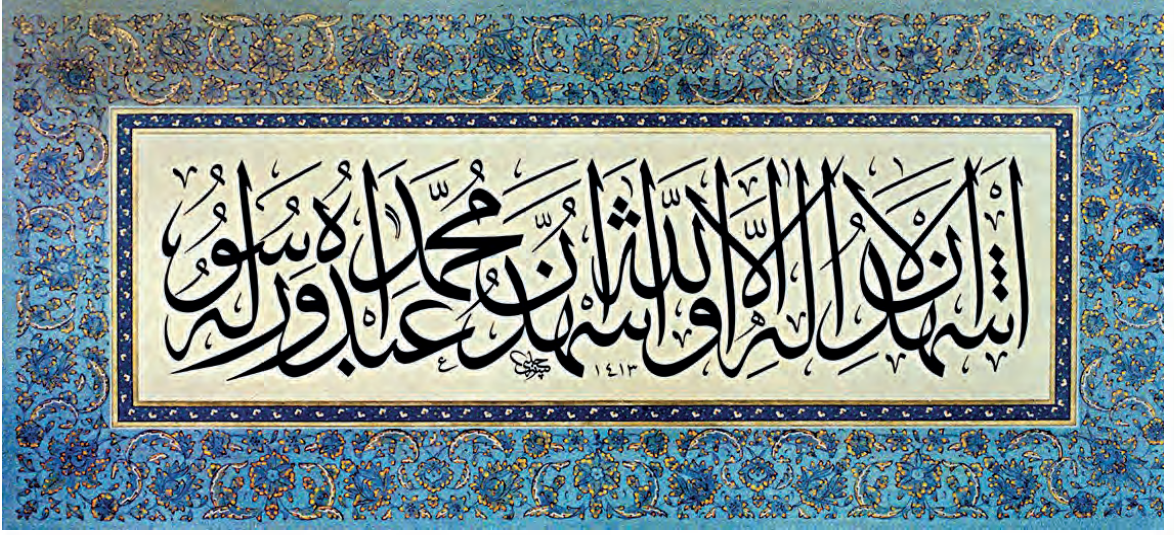 أَشْهَدُ أَنْ لَا إِلٰهَ إِلَّا اللّٰهُ وَأَشْهَدُ أَنَّ مُحَمَّدًا عَبْدُهُ وَرَسُولُهُ
١٤١٣